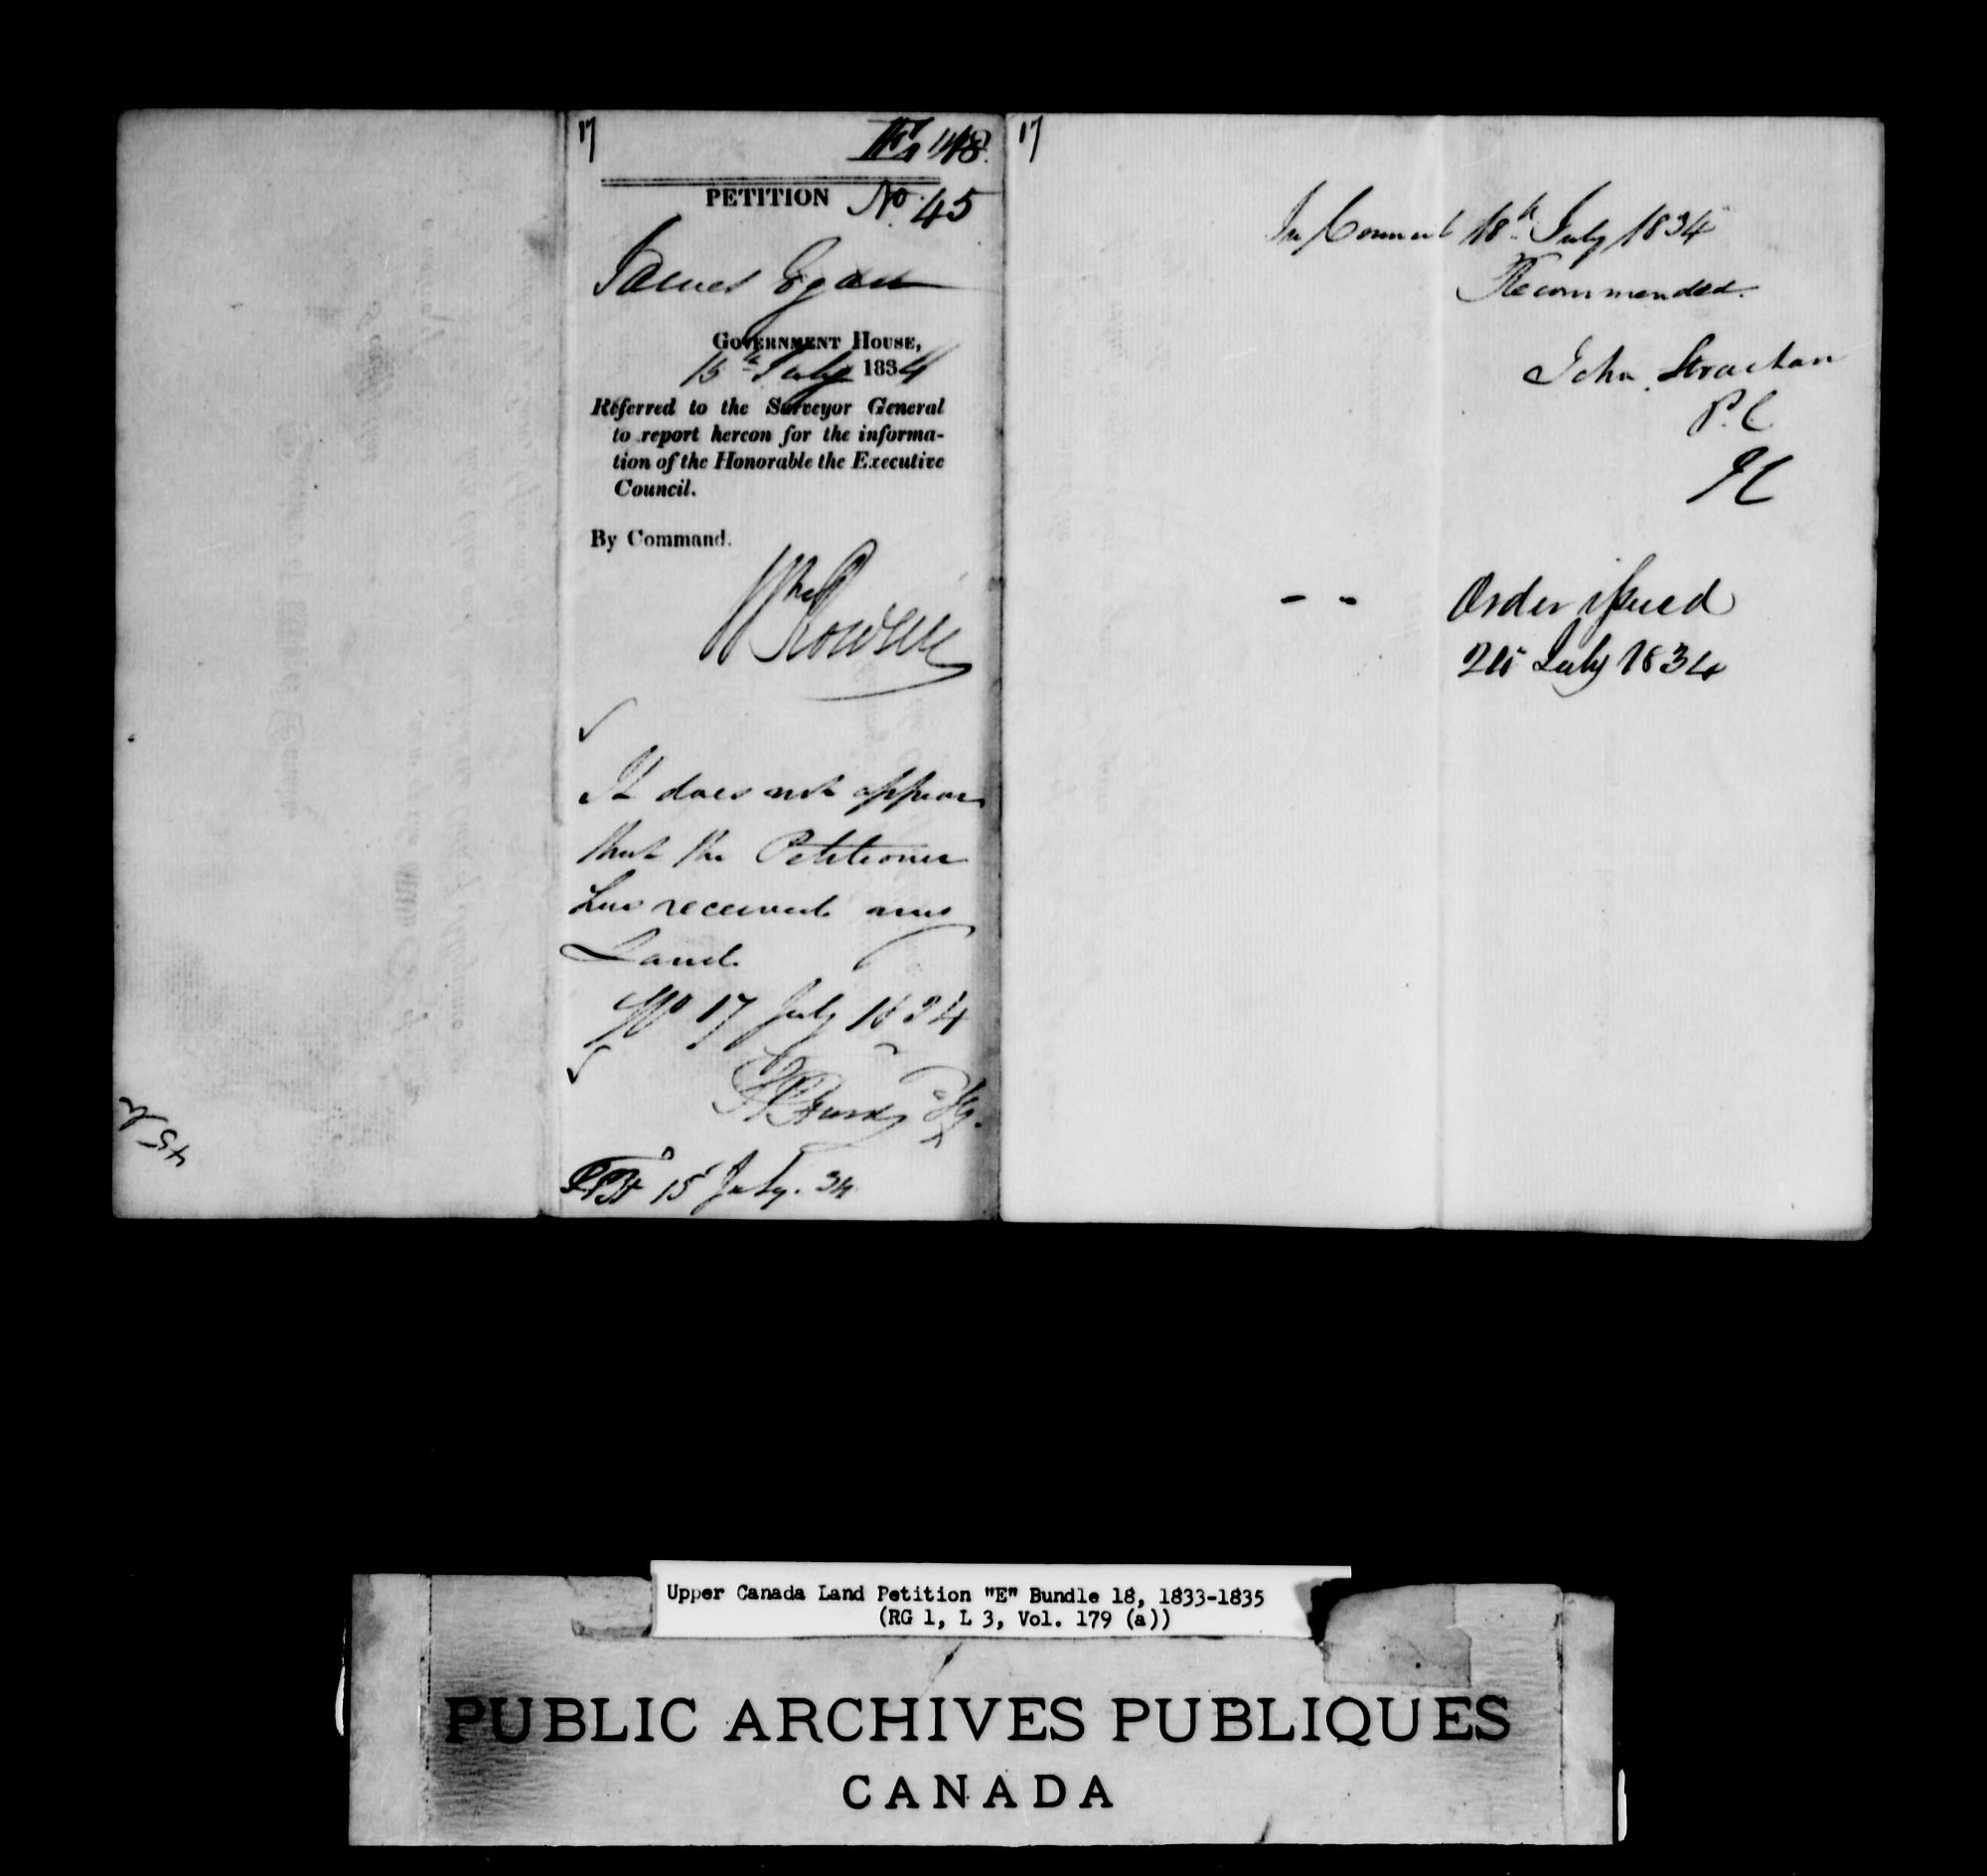 17
PETITION No. 45
James Egan
GOVERNMENT HOUSE,
15th July 1834
Referred to the Surveyor General
to report hereon for the informa-
tion of the Honorable the Executive
Council.
By Command.
Wm Rowan
It does not appear
that the Petitioner
has received any
Land.
17 July 1834
15 July. 34
45
17
In Council 18th July 1834
Recommended.
John Strachan
P.C.
Order issued
July 1834
Upper Canada Land Petition "E" Bundle 18, 1833-1835
(RG 1, L 3, Vol. 179 (a))
PUBLIC ARCHIVES PUBLIQUES
CANADA